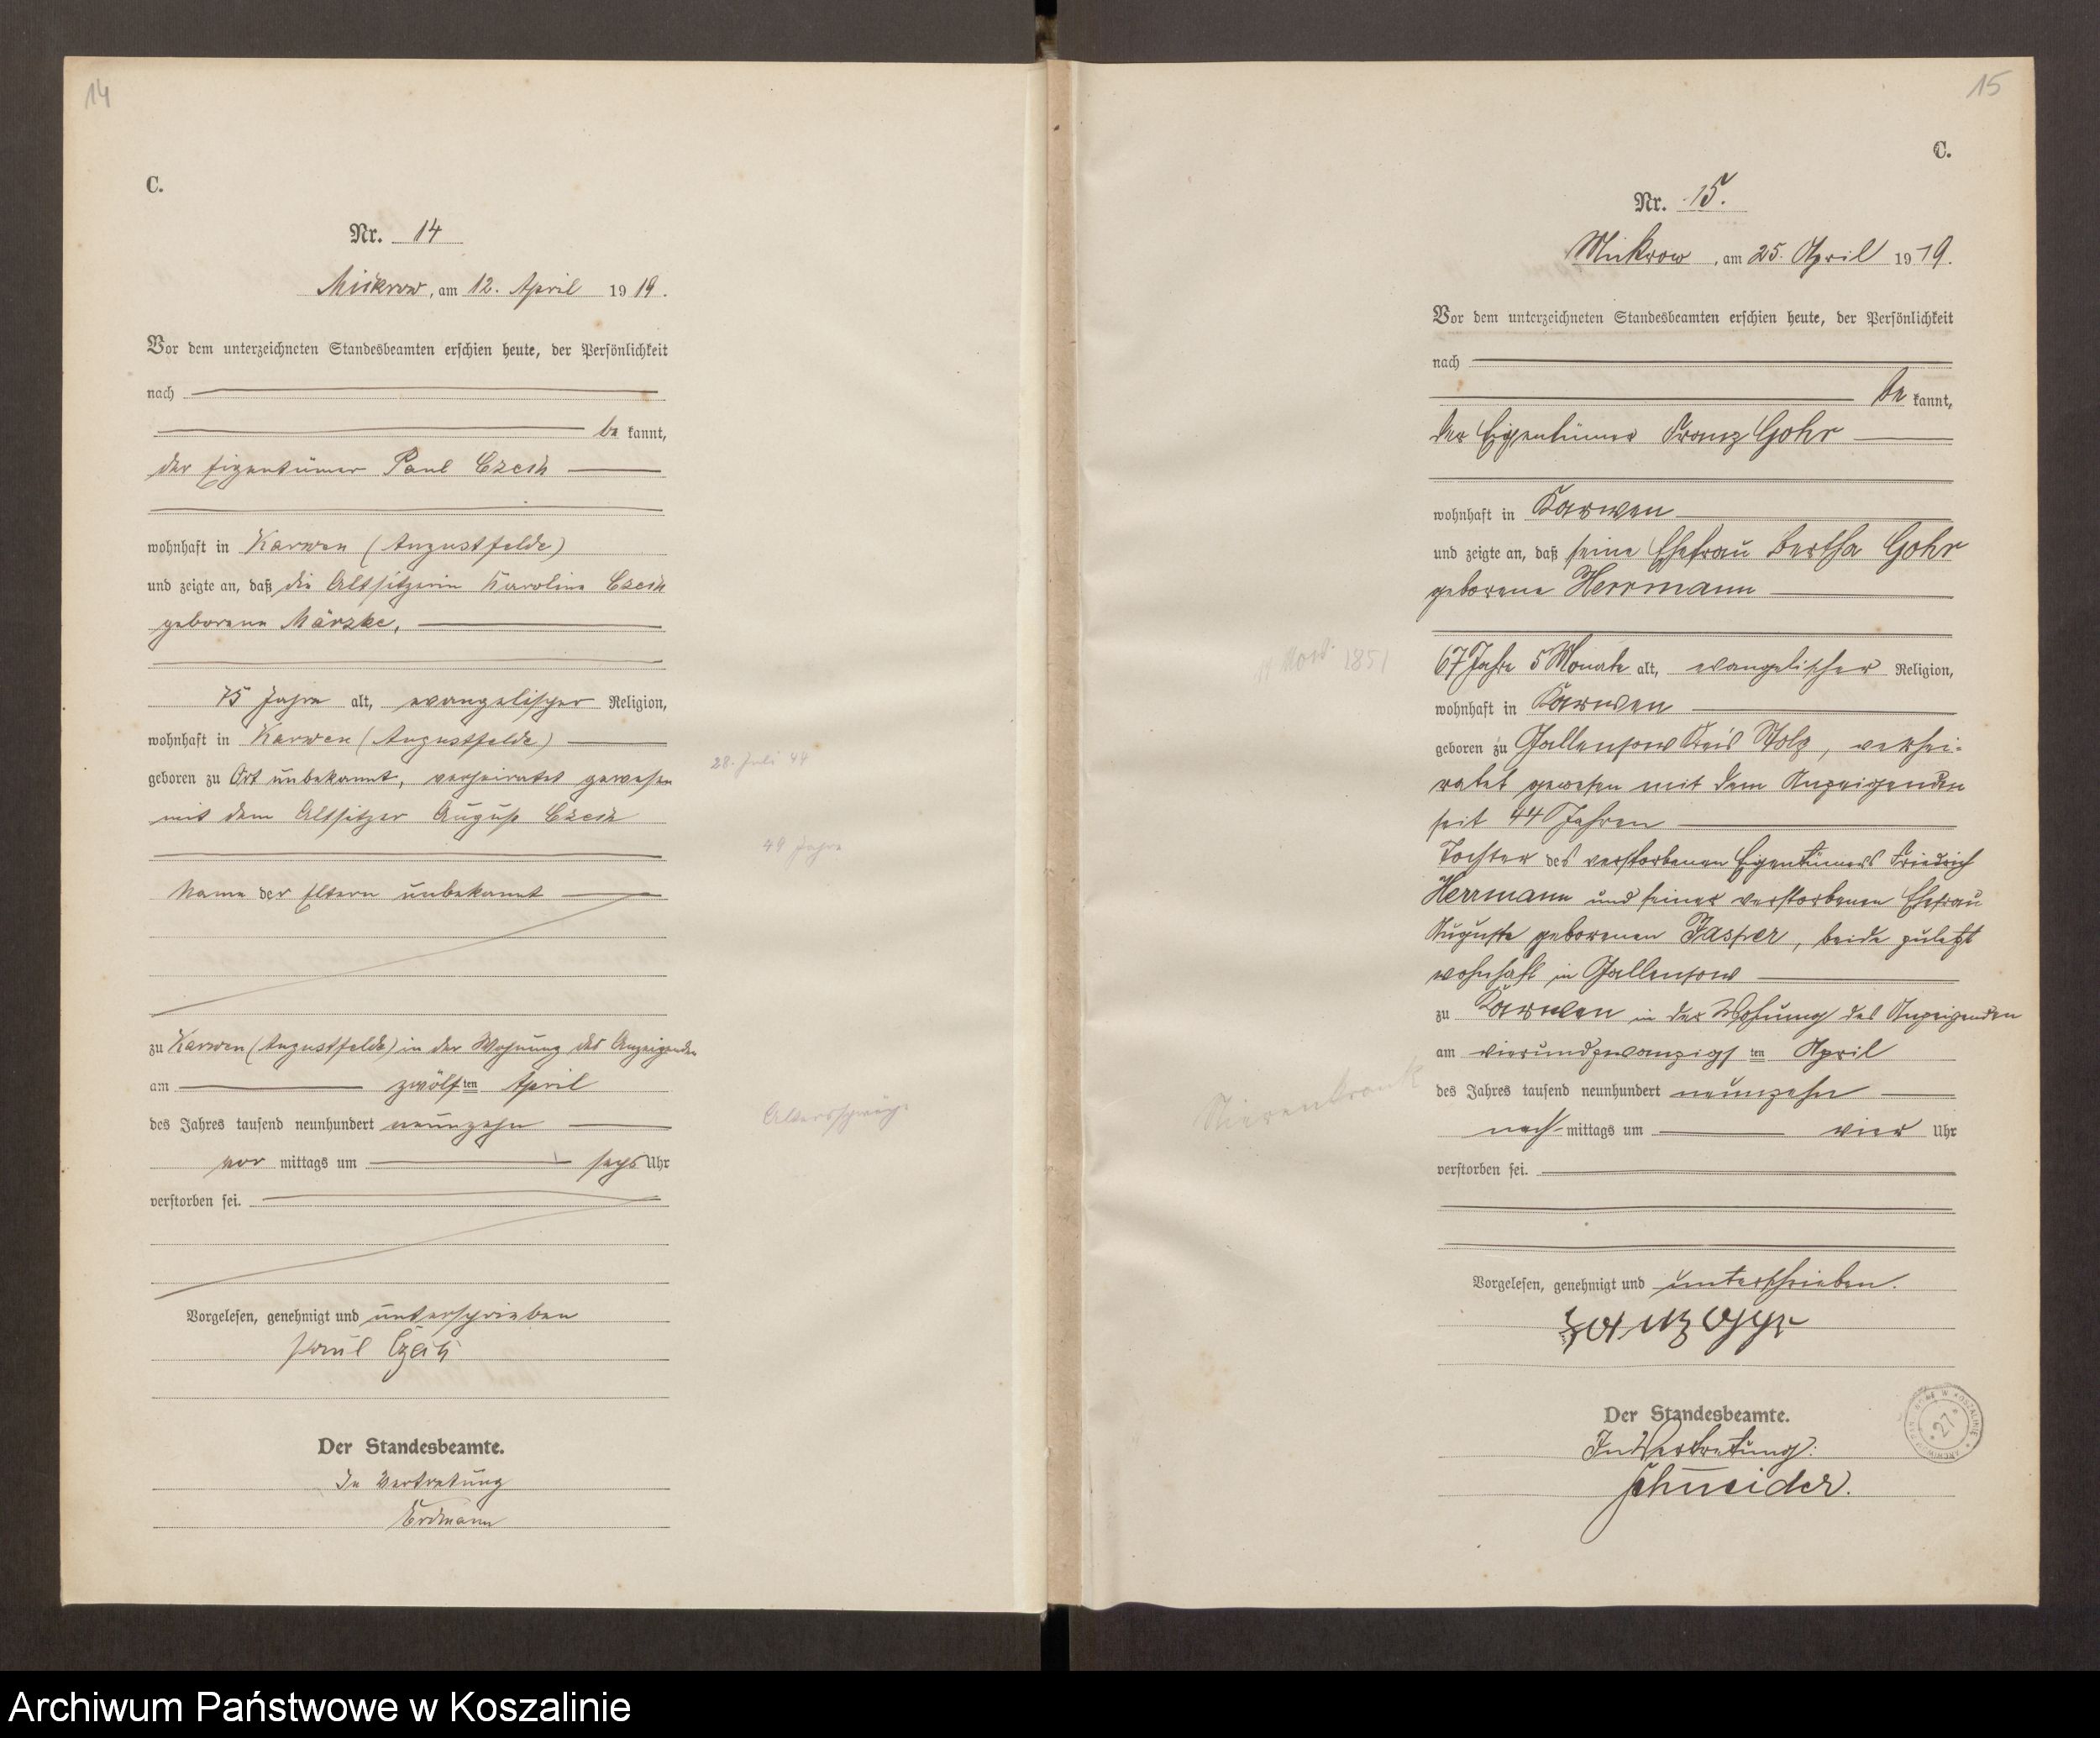 14
C.
Nr. 14
Mickrow, am 12. April 1919.
Vor dem unterzeichneten Standesbeamten erschien heute, der Persönlichkeit
nach
be kannt,
der Eigentümer Paul Czech
wohnhaft in Karwen (Augustfelde)
und zeigte an, daß die Altsitzerin Karoline Czech
geborene Märzke,
75 Jahre alt, evangelischer Religion,
wohnhaft in Karwen (Augustfelde)
geboren zu Ort unbekannt, verheiratet gewesen
28. Juli 44
mit dem Altsitzer August Czech
49 Jahre
Name der Eltern unbekannt
zu Karwen (Augustfelde) in der Wohnung des Anzeigenden
am zwölften April
des Jahres tausend neunhundert neunzehn
Altersschwäche
vor mittags um sechs Uhr
verstorben sei.
Vorgelesen, genehmigt und unterschrieben
Paul Czech
Der Standesbeamte.
In Vertretung
Erdmann
15
C.
Nr. 15.
Mickrow, am 25. April 1919.
Vor dem unterzeichneten Standesbeamten erschien heute, der Persönlichkeit
nach
be kannt,
der Eigentümer Franz Gohr
wohnhaft in Karwen
und zeigte an, daß seine Ehefrau Bertha Gohr
geborene Herrmann
Nov. 1851
67 Jahre 5 Monate alt, evangelischer Religion,
wohnhaft in Karwen
geboren zu Gallensow Kreis Stolp, verhei-
ratet gewesen mit dem Anzeigenden
seit 44 Jahren
Tochter des verstorbenen Eigentümers Friedrich
Herrmann und seiner verstorbenen Ehefrau
Auguste geborenen Jasper, beide zuletzt
wohnhaft in Gallensow
zu Karwen in der Wohnung des Anzeigenden
am vierundzwanzigsten April
Nierenkrank
des Jahres tausend neunhundert neunzehn
nach mittags um vier Uhr
verstorben sei.
Vorgelesen, genehmigt und unterschrieben.
Franz Gohr
Der Standesbeamte.
In Vertretung:
Schneider.
* 27 *
Archiwum Państwowe w Koszalinie